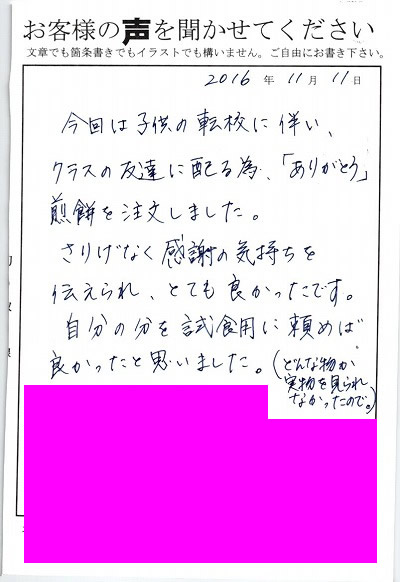 お客様の声を聞かせてください
文章でも箇条書きでもイラストでも構いません。ご自由にお書き下さい。
2016 年 11 月 11 日
今回は子供の転校に伴い、
クラスの友達に配る為、「ありがとう」
煎餅を注文しました。
さりげなく感謝の気持ちを
伝えられ、とても良かったです。
自分の分を試食用に頼めば
良かったと思いました。(どんな物か
実物を見られ
なかったので。)